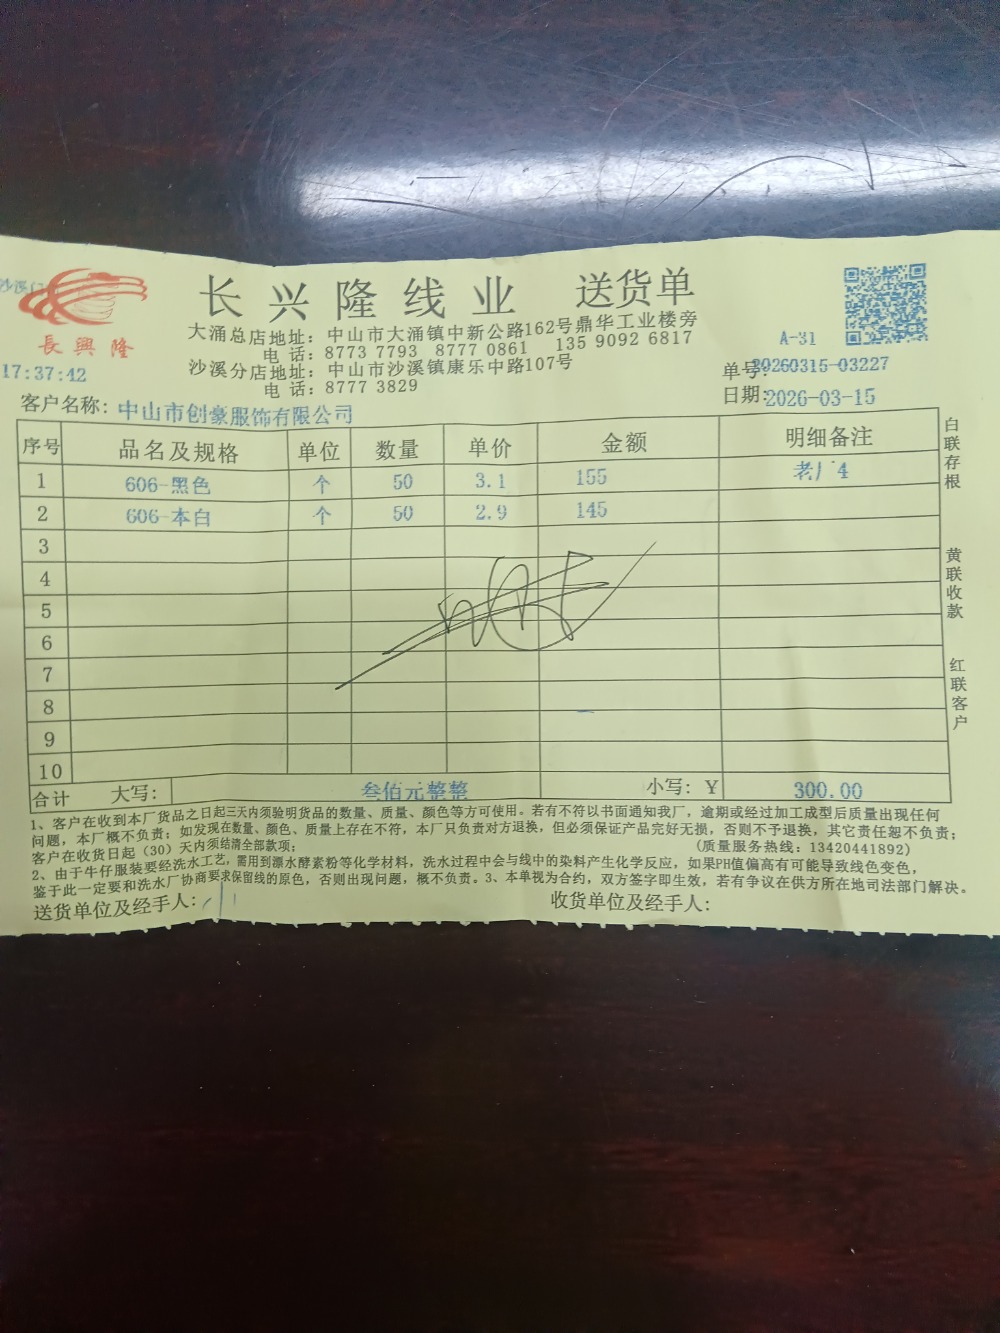 長興隆
17:37:42
长兴隆线业 送货单
大涌总店地址：中山市大涌镇中新公路162号鼎华工业楼旁
电话：8773 7793 8777 0861 135 9092 6817
沙溪分店地址：中山市沙溪镇康乐中路107号
电话：8777 3829
A-31
单号：20260315-03227
日期：2026-03-15
客户名称：中山市创豪服饰有限公司
序号 品名及规格 单位 数量 单价 金额 明细备注
1 606-黑色 个 50 3.1 155 老厂4
2 606-本白 个 50 2.9 145
3
4
5
6
7
8
9
10
合计 大写：叁佰元整整 小写：Y 300.00
白联存根
黄联收款
红联客户
1、客户在收到本厂货品之日起三天内须验明货品的数量、质量、颜色等方可使用。若有不符以书面通知我厂，逾期或经过加工成型后质量出现任何
问题，本厂概不负责；如发现在数量、颜色、质量上存在不符，本厂只负责对方退换，但必须保证产品完好无损，否则不予退换，其它责任恕不负责；
客户在收货日起（30）天内须结清全部款项； (质量服务热线：13420441892)
2、由于牛仔服装要经洗水工艺，需用到漂水酵素粉等化学材料，洗水过程中会与线中的染料产生化学反应，如果PH值偏高有可能导致线色变色，
鉴于此一定要和洗水厂协商要求保留线的原色，否则出现问题，概不负责。3、本单视为合约，双方签字即生效，若有争议在供方所在地司法部门解决。
送货单位及经手人： 收货单位及经手人：